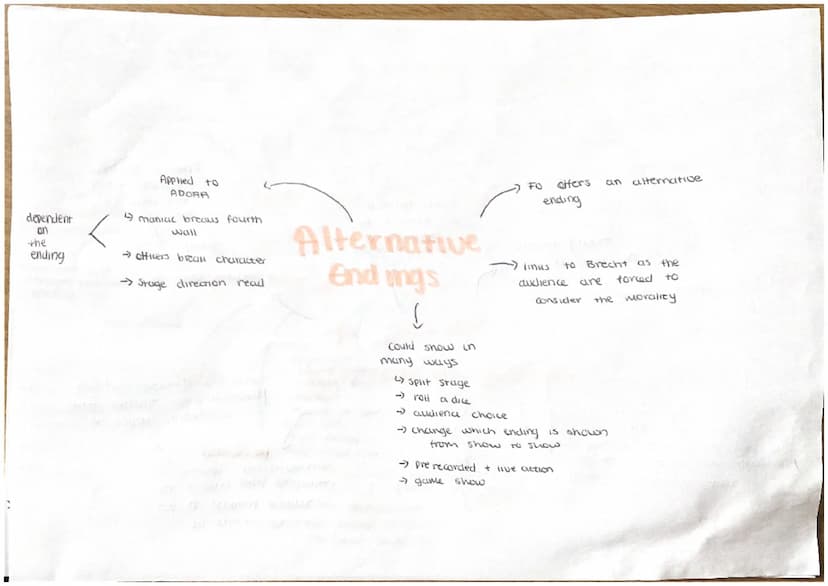 Alternative
Endings
Applied to
ADOAA
↳ maniac breaks fourth
wall
→ others break character
→ Stage direction read
dependent
on
the
ending
→ Fo offers an alternative
ending
→ links to Brecht as the
audience are forced to
consider the morality
could show in
many ways
↳ split stage
→ roll a dice
→ audience choice
→ change which ending is shown
from show to show
→ pre recorded + live action
→ game show